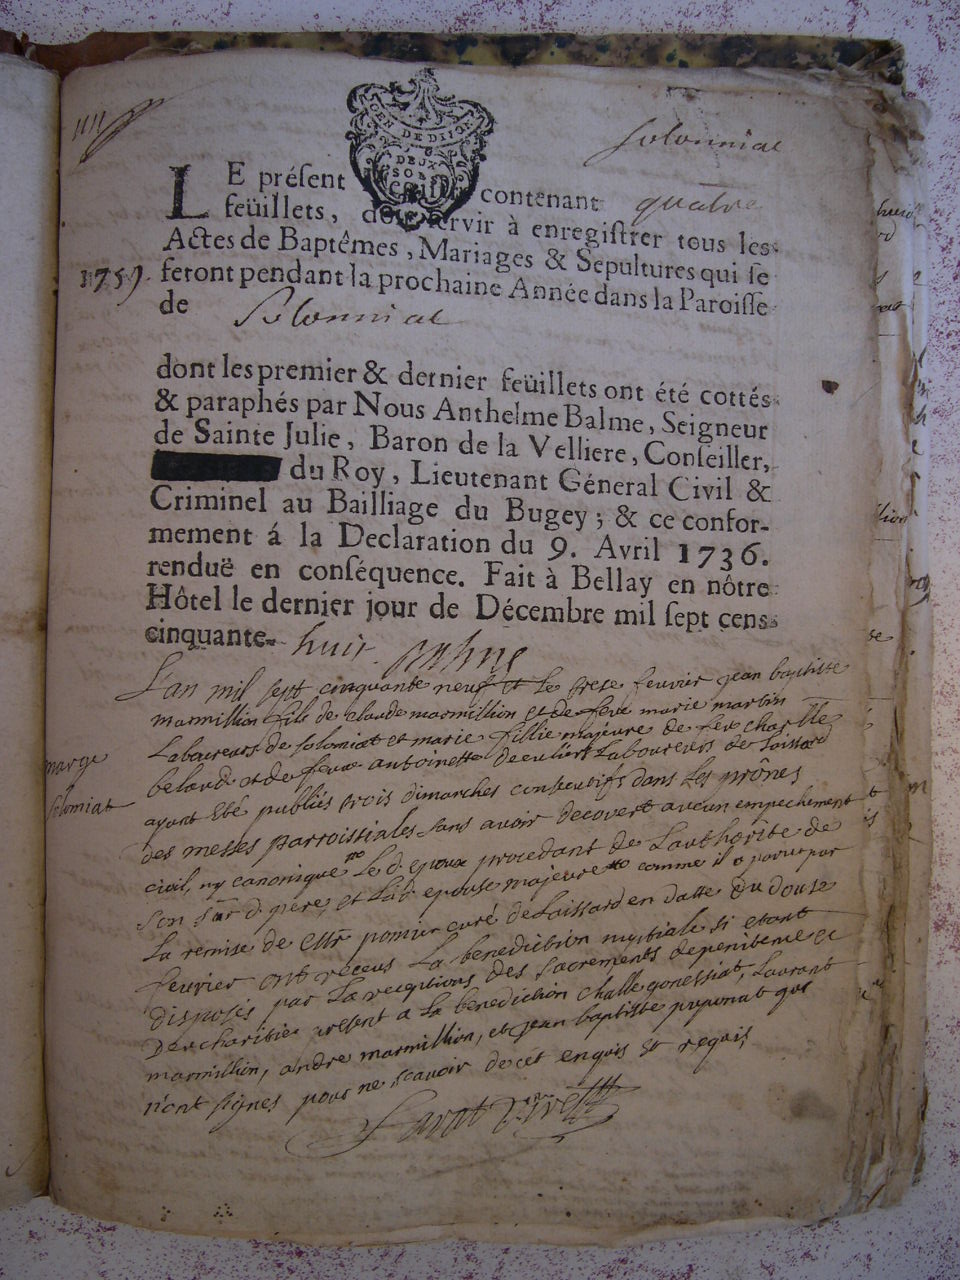 GEN DE DIJON
DEUX
SOLS
Solonniat
LE présent contenant quatre
feüillets, doit servir à enregistrer tous les
Actes de Baptêmes, Mariages & Sepultures qui se
1759. feront pendant la prochaine Année dans la Paroisse
de Solonniat
dont les premier & dernier feüillets ont été cottés
& paraphés par Nous Anthelme Balme, Seigneur
de Sainte Julie, Baron de la Velliere, Conseiller,
du Roy, Lieutenant Géneral Civil &
Criminel au Bailliage du Bugey; & ce confor-
mement á la Declaration du 9. Avril 1736.
renduë en conséquence. Fait à Bellay en nôtre
Hôtel le dernier jour de Décembre mil sept cens
cinquante-huit. Balme
L'an mil sept cinquante neuf et le fevrier jean baptiste
marmillion fils de claude marmillion et de feue marie martin
Laboureurs de solomiat et marie fillie majeure de feu charlle
et de feue antoinette Laboureurs de Loissard
mariage
solomiat
ayant été publiés trois dimanches consecutifs dans les prônes
des messes parroissiales sans avoir decovert aucun empechement
civil, ny canonique Le d. epoux procedant de L'authorite de
son d. pere, et La d. epouse majeure comme il a parut par
La remise de curé de Laissard en datte du douse
fevrier ont receus La benediction nuptiale si etant
disposés par La receptions des sacrements de penitence et
present a La benediction challe gonessiat, Laurant
marmillion, andre marmillion, et jean baptiste que
n'ont signes pour ne scavoir de cet enquis et requis